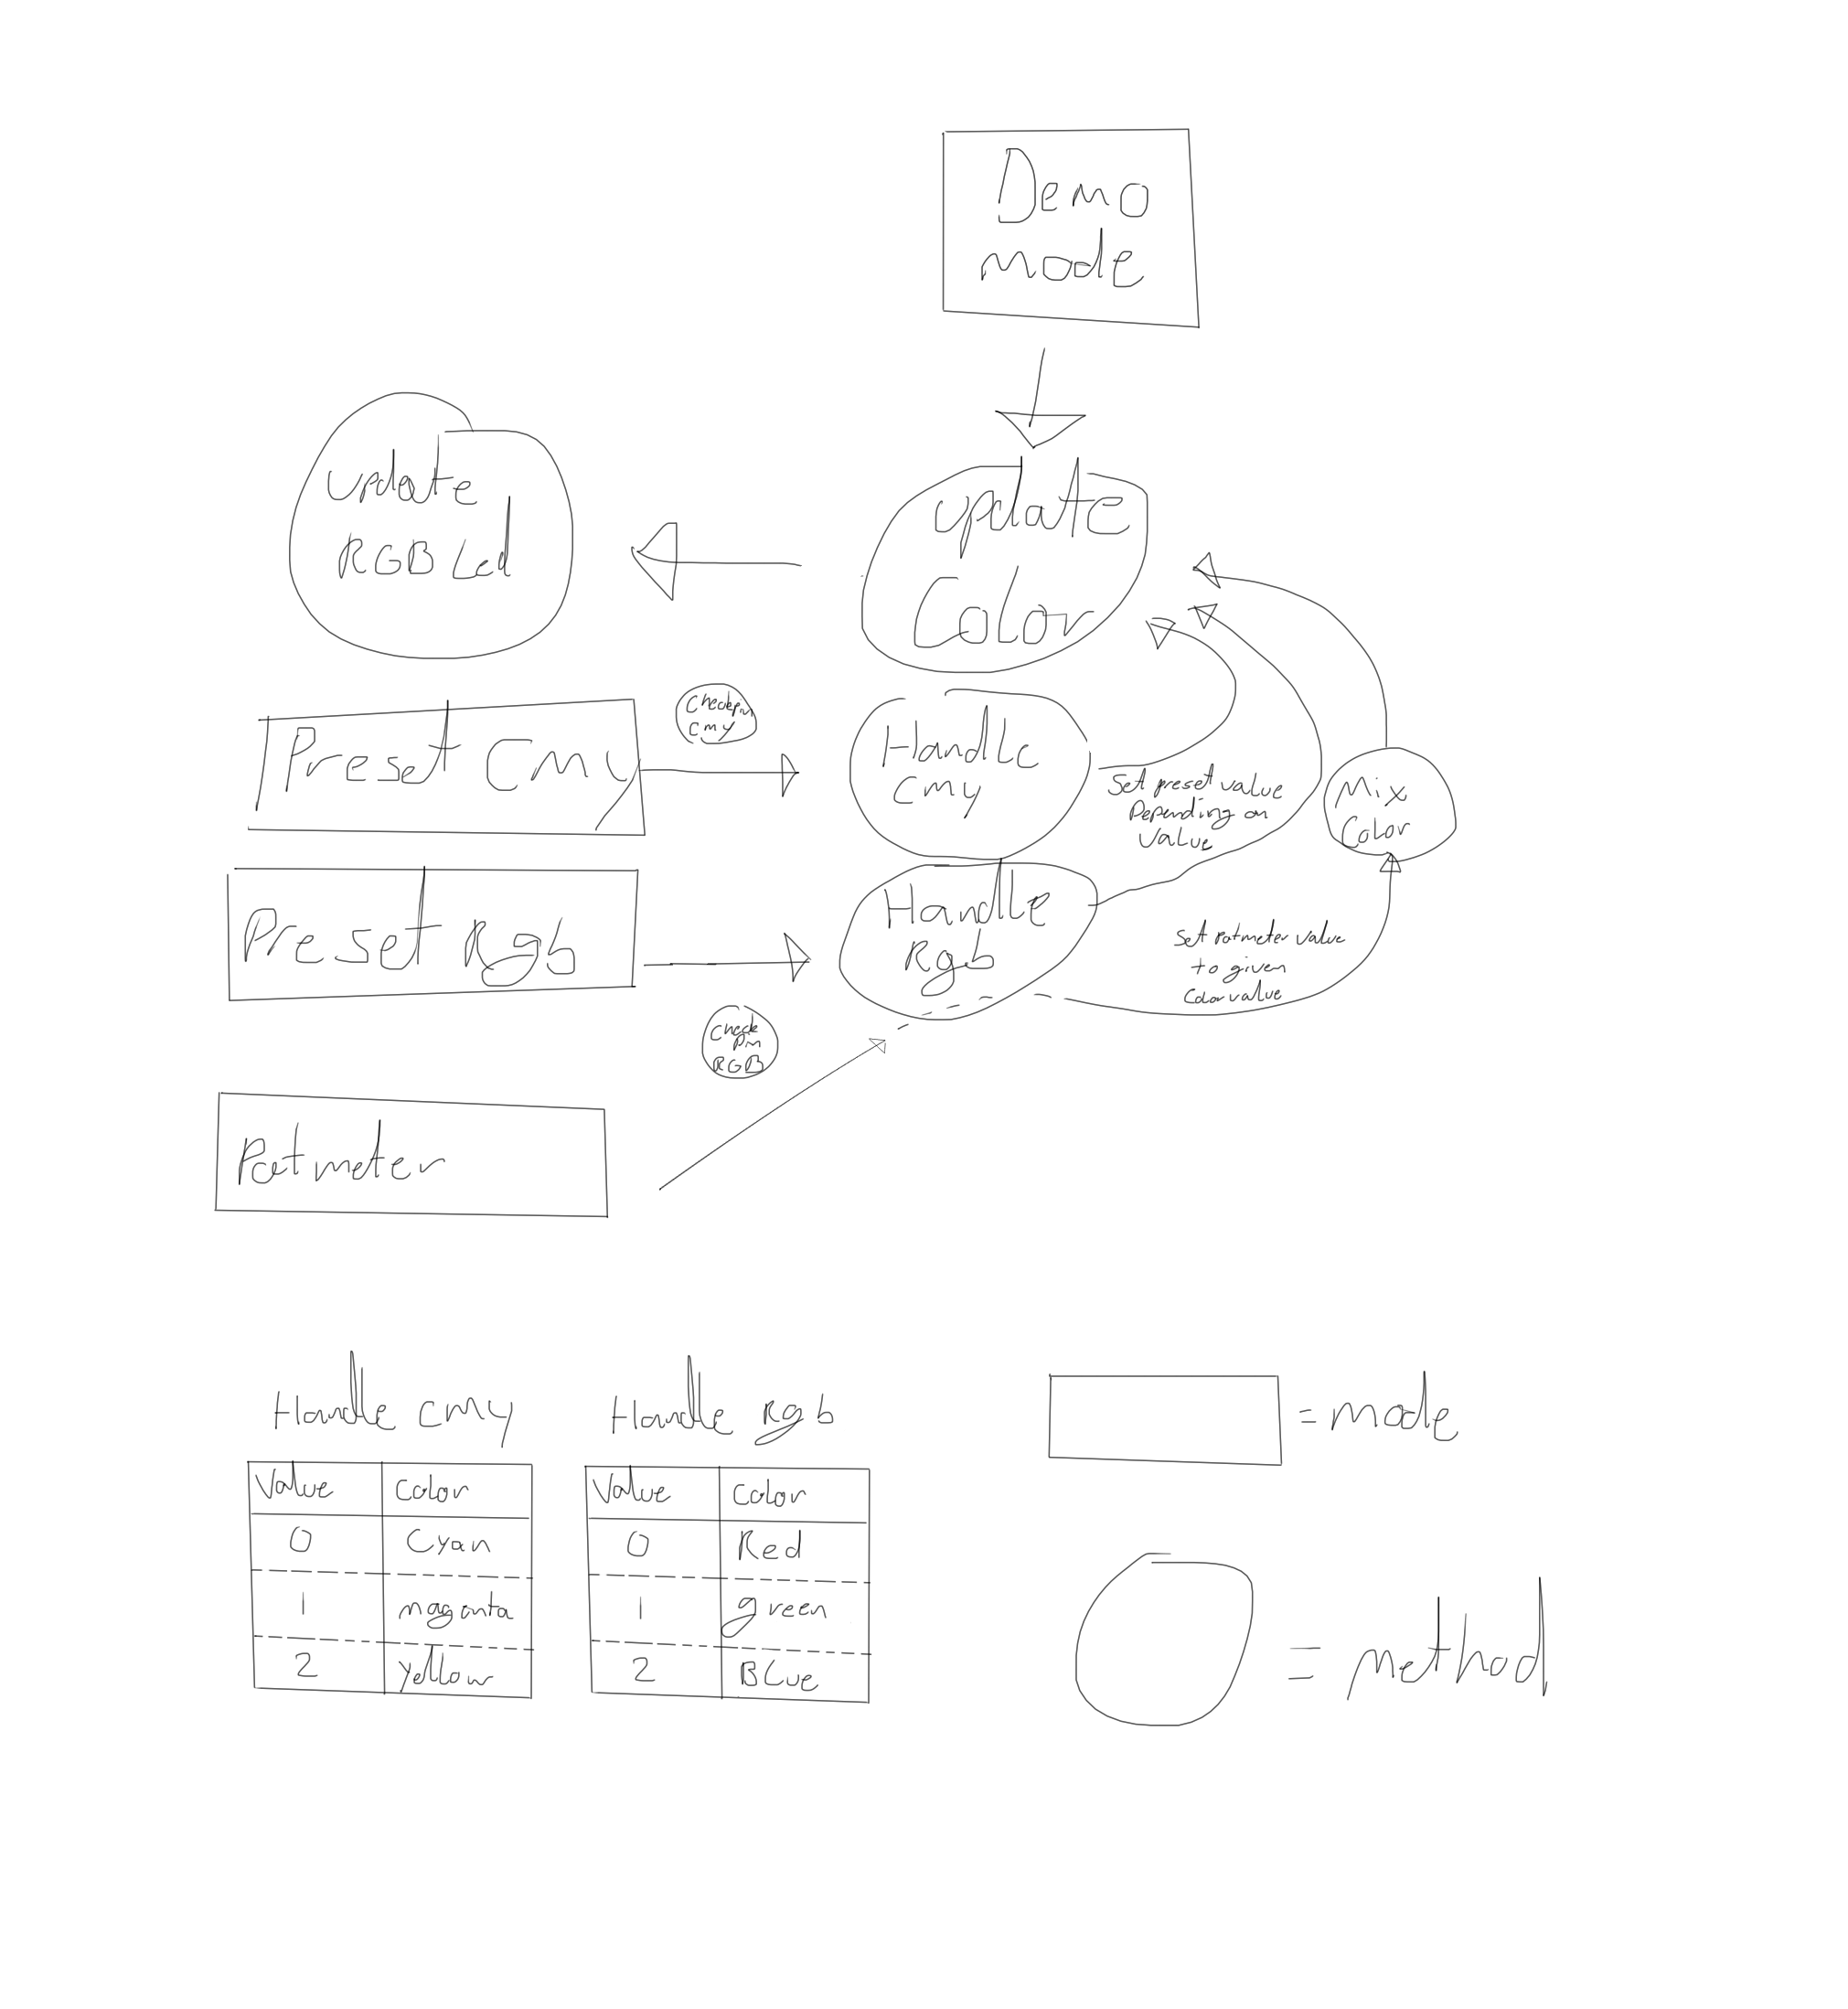 Demo
mode
update
RGB Led
update
Color
Preset Cmy
checkpin
cmy
Handle
cmy
Set preset value
Depending on
Value
Mix
Color
Preset Rgb
Handle
Rgb
Set Potmeter value
to given
Color value
check
Pin
RGB
Potmeter
Handle cmy
Value Color
0 Cyan
1 magenta
2 yellow
Handle Rgb
Value Color
0 Red
1 green
2 BLue
= mode
= method